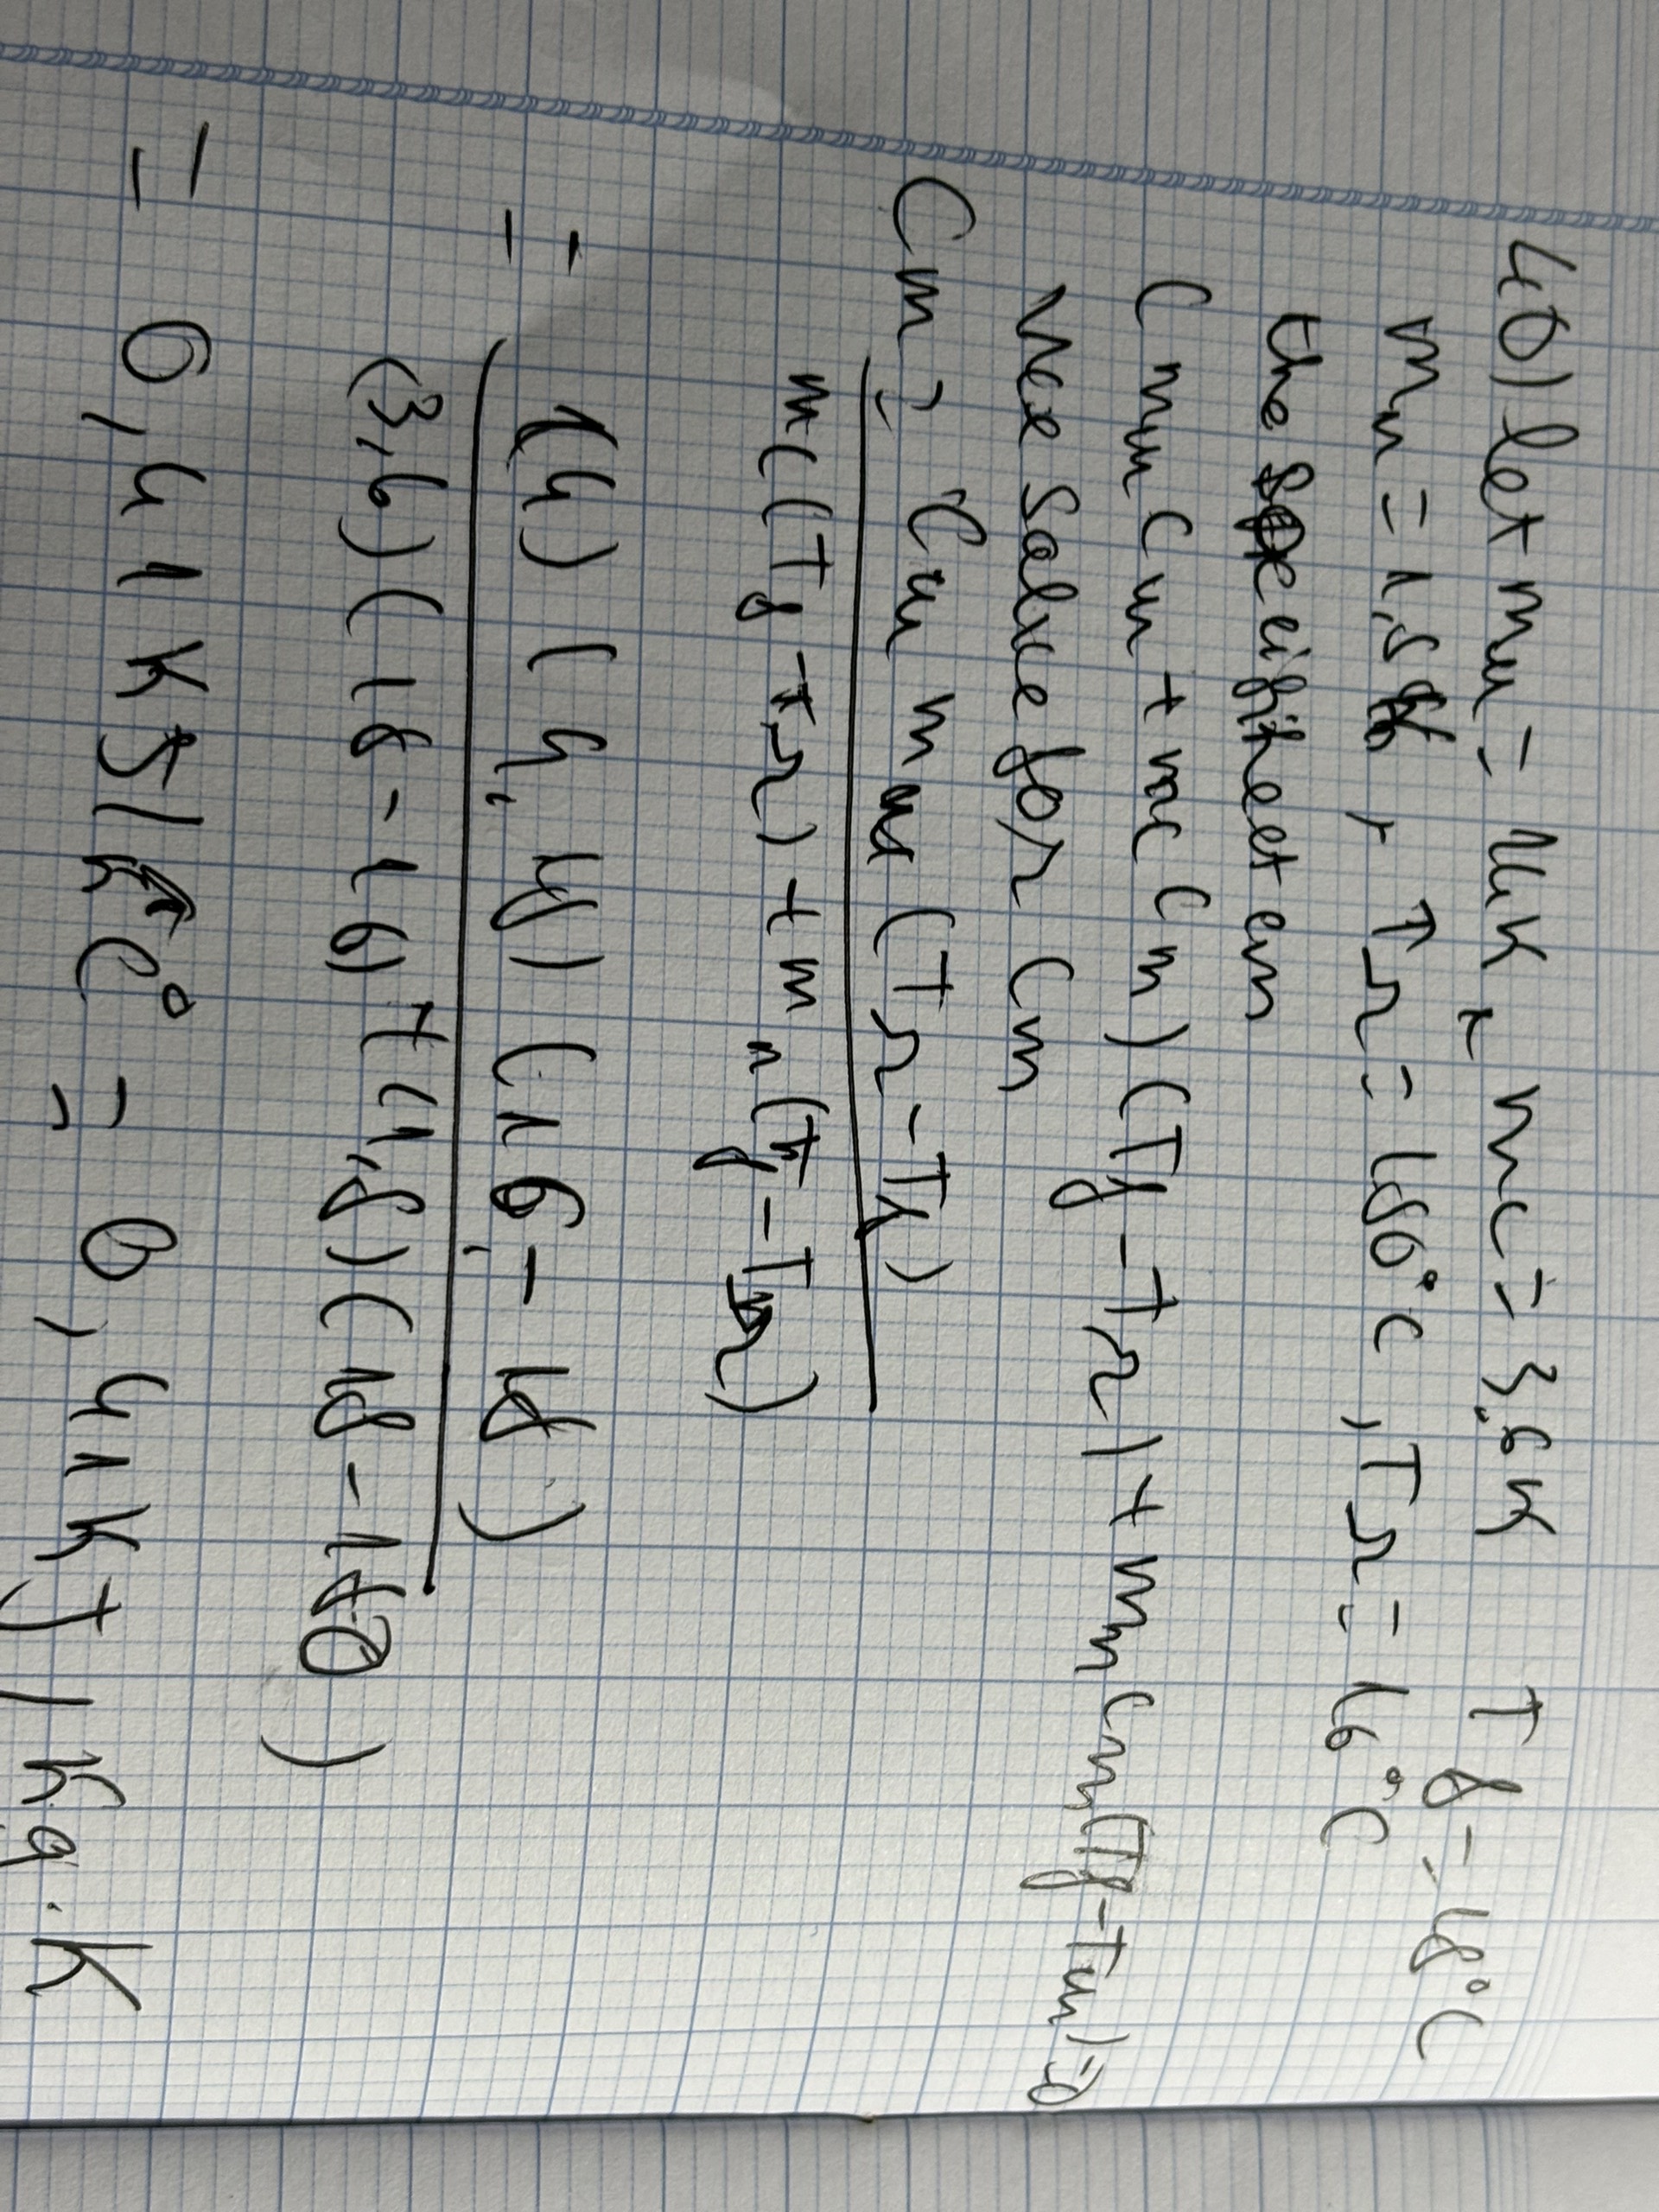 40) let mw = 14K, mc = 3.6K Tf = 18°C
mn = 1,8, Tr = 180°C, Tr = 16°C
the specifiheet em
(mw Cw + mc Cm) (Tf - Tr) + mn Cm (Tf - Tw) = 0
Wee Solve for Cm
Cm = Cw mw (Tr - Tf)
mc (Tf - Tr) + mn (Tf - Tr)
= (14) (4,18) (16,- 18)
(3,6) (18 - 16) + (1,8) (18 - 180)
= 0,41 KJ/k C° = 0,41 KJ/Kg.K